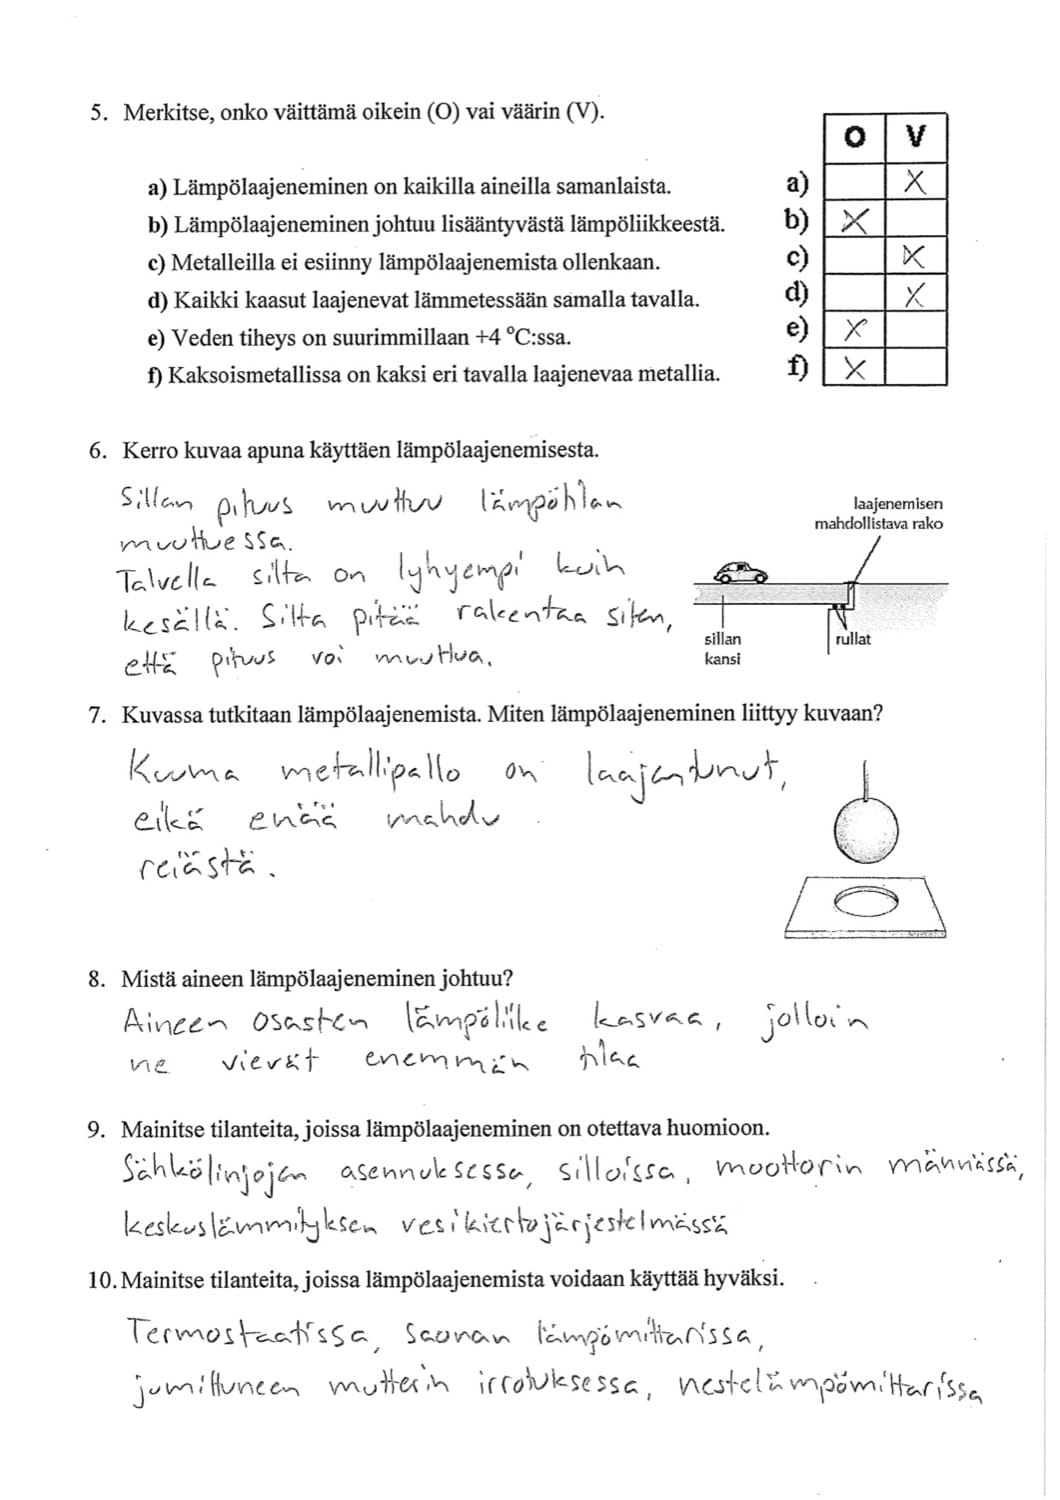 5. Merkitse, onko väittämä oikein (O) vai väärin (V).
O V
a) Lämpölaajeneminen on kaikilla aineilla samanlaista. a) X
b) Lämpölaajeneminen johtuu lisääntyvästä lämpöliikkeestä. b) X
c) Metalleilla ei esiinny lämpölaajenemista ollenkaan. c) X
d) Kaikki kaasut laajenevat lämmetessään samalla tavalla. d) X
e) Veden tiheys on suurimmillaan +4 °C:ssa. e) X
f) Kaksoismetallissa on kaksi eri tavalla laajenevaa metallia. f) X
6. Kerro kuvaa apuna käyttäen lämpölaajenemisesta.
Sillan pituus muuttuu lämpötilan
muuttuessa.
Talvella silta on lyhyempi kuin
kesällä. Silta pitää rakentaa siten,
että pituus voi muuttua.
laajenemisen
mahdollistava rako
sillan
kansi
rullat
7. Kuvassa tutkitaan lämpölaajenemista. Miten lämpölaajeneminen liittyy kuvaan?
Kuuma metallipallo on laajentunut,
eikä enää mahdu
reiästä.
8. Mistä aineen lämpölaajeneminen johtuu?
Aineen osasten lämpöliike kasvaa, jolloin
ne vievät enemmän tilaa
9. Mainitse tilanteita, joissa lämpölaajeneminen on otettava huomioon.
Sähkölinjojen asennuksessa, silloissa, moottorin männässä,
keskuslämmityksen vesikiertojärjestelmässä
10. Mainitse tilanteita, joissa lämpölaajenemista voidaan käyttää hyväksi.
Termostaatissa, saunan lämpömittarissa,
jumittuneen mutterin irrotuksessa, nestelämpömittarissa